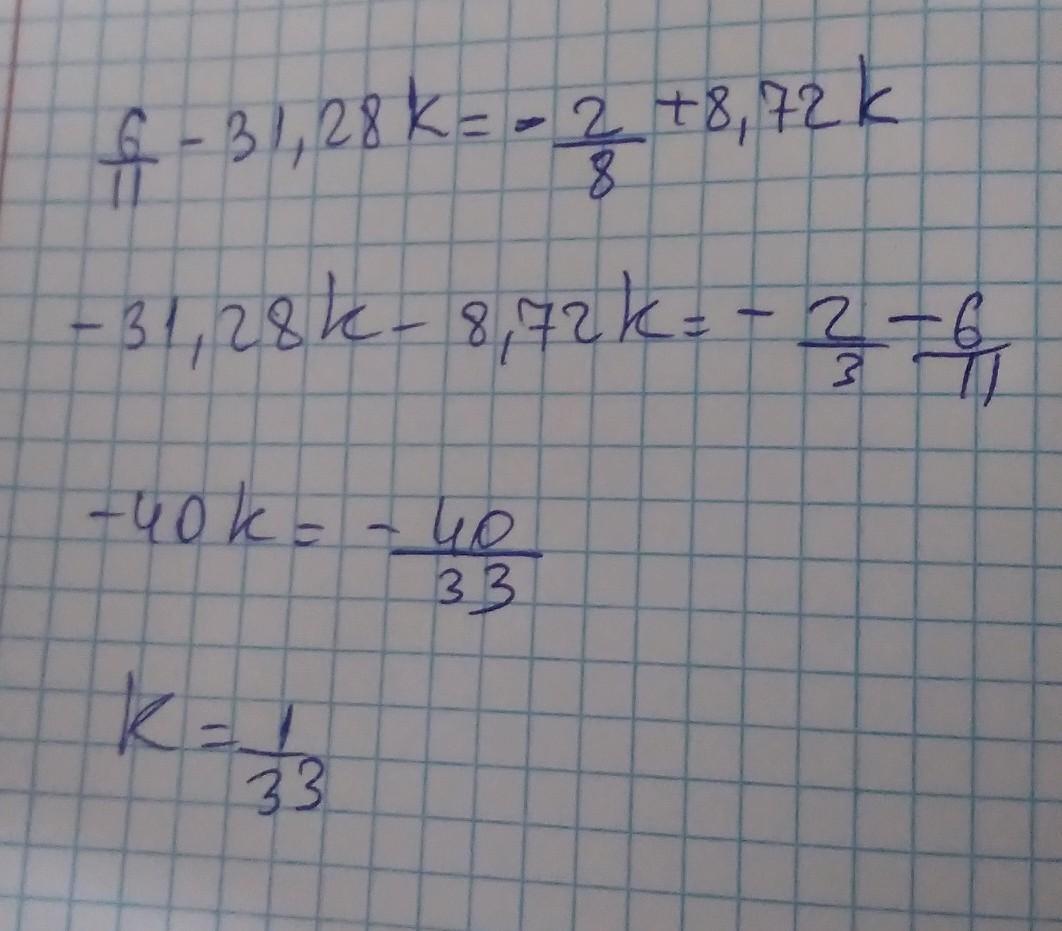 6/11 - 31,28k = - 2/8 + 8,72k
-31,28k - 8,72k = - 2/3 - 6/11
-40k = - 40/33
k = 1/33